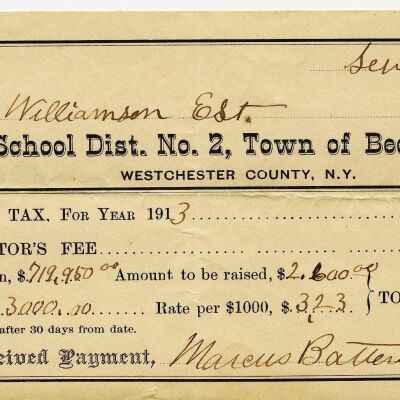 Sen
Williamson Est.
School Dist. No. 2, Town of Bed
WESTCHESTER COUNTY, N.Y.
TAX, FOR YEAR 1913
TOR'S FEE
n, $719,950 00 Amount to be raised, $2.600 00
3000.00 Rate per $1000, $.3 2 3 TO
after 30 days from date.
eived Payment, Marcus Batten